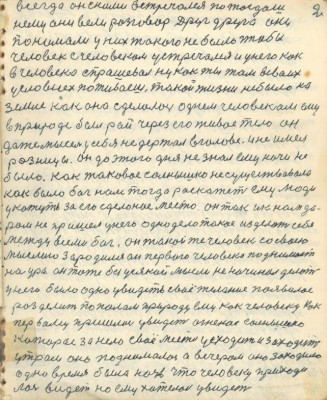 2
всегда он с ними встречался потогдали
нему они вели разговор Друг друга они
понимали у них такого не было чтобы
человек с человеком встречался и у него как
в человека спрашевал ну как ты там в своих
условиех потиваеш, такой жизни небыло на
земле как она сделалас одним человеком ему
в природе был рай через его живое тело он
даже мысли у себя не держал в голове. и не имел
розницы. он до этого дня не знал ему ночи не
было, как таковое солнышко не существовала
как было бог нам тогда раскажет ему люди
укажуть за его сделоное место. он так и к нам да-
ром не пришел у него одно дело такое изделать себя
между всеми бог, он такой же человек со своею
мыслию Зародился он первого человека поднимает
на ура он тоже бы усякой мысли не начинал делать
у него было одно увидеть своё желание появилос
розделит пополам природу ему как человеку как
первому пришлос увидет огненое солнышко
которое заняло своё место уеходит и заходит
утром оно поднималос а вечером оно заходило
одно время была ноч, что человеку приходи
лос видет но ему хателос увидет